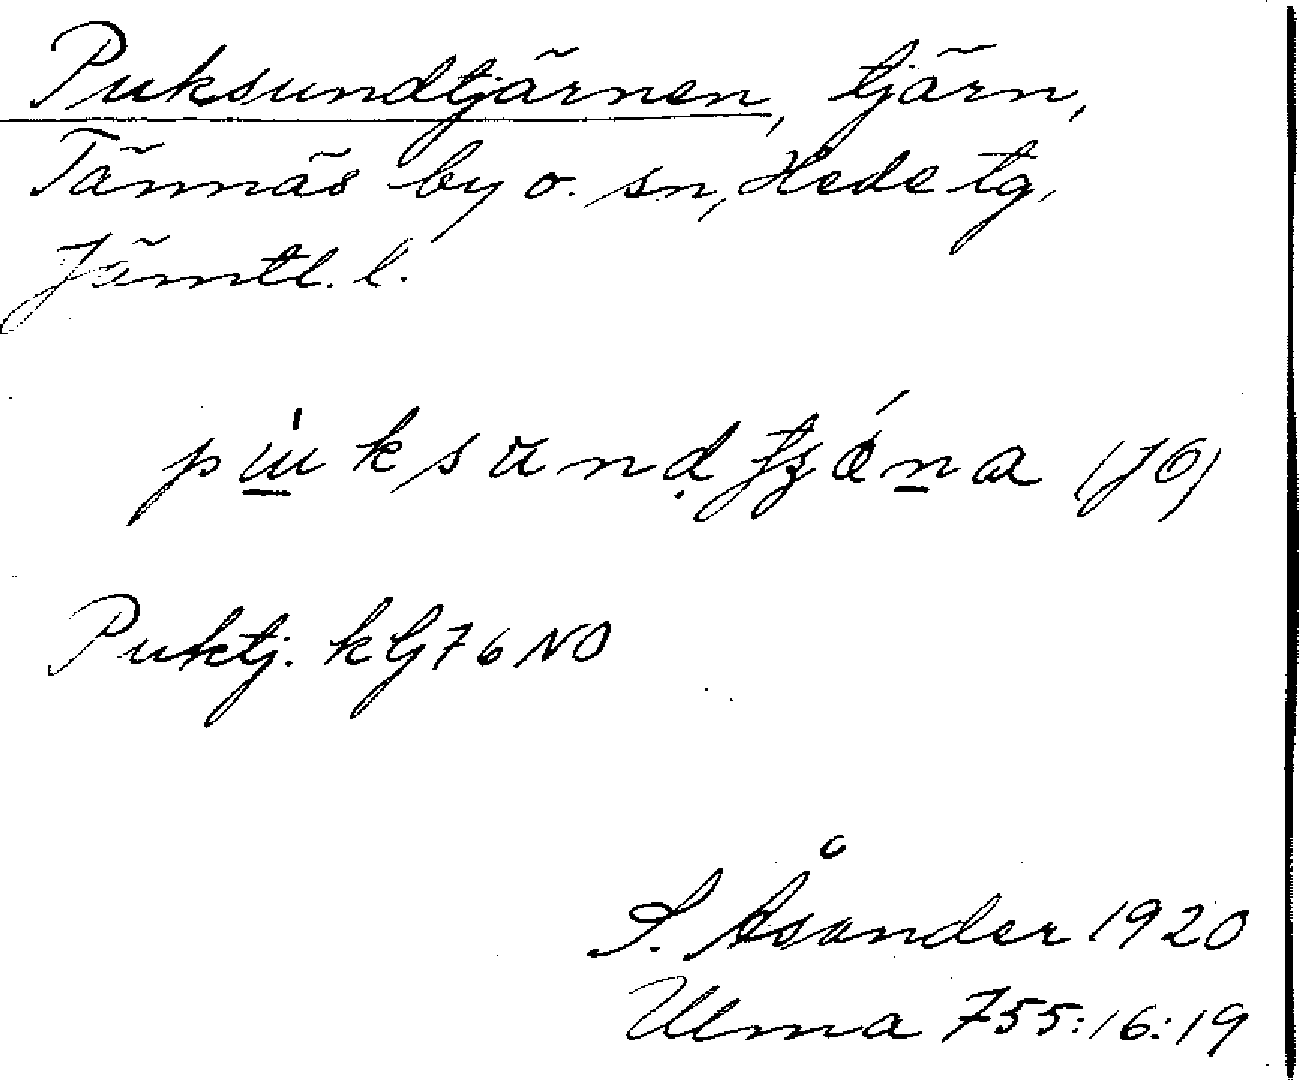 Puksundtjärnen, tjärn,
Tännäs by o. sn, Hede tg,
Jämtl. l.
(JÖ)
Puktj. kG76NO
S. Åsander 1920
Ulma 755:16:19